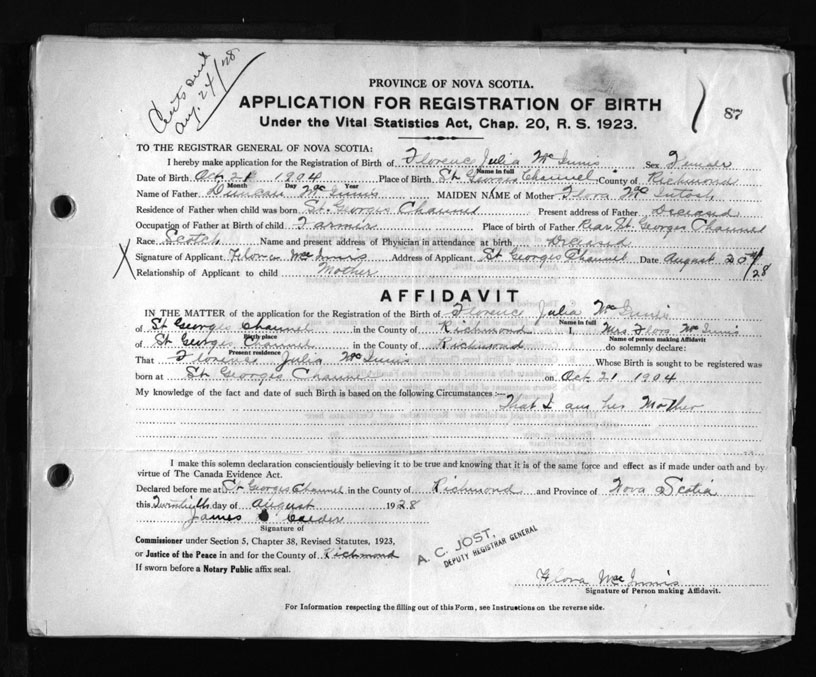 Certs sent
Aug. 24/28
PROVINCE OF NOVA SCOTIA.
APPLICATION FOR REGISTRATION OF BIRTH
87
Under the Vital Statistics Act, Chap. 20, R. S. 1923.
TO THE REGISTRAR GENERAL OF NOVA SCOTIA:
I hereby make application for the Registration of Birth of Florence Julia McInnis Sex Female
Name in full
Date of Birth Oct 21 1904 Place of Birth St Georges Channel County of Richmond
Month Day Year
Name of Father Duncan McInnis MAIDEN NAME of Mother Flora McIntosh
Residence of Father when child was born St. Georges Channel Present address of Father Deceased
Occupation of Father at Birth of child Farmer Place of birth of Father Rear St. Georges Channel
Race Scotch Name and present address of Physician in attendance at birth
X Signature of Applicant Flora McInnis Address of Applicant St Georges Channel Date August 20th/28
Relationship of Applicant to child Mother
AFFIDAVIT
IN THE MATTER of the application for the Registration of the Birth of Florence Julia McInnis
Name in full
of St Georges Channel in the County of Richmond I, Mrs Flora McInnis
Birth place
Name of person making Affidavit
of St Georges Channel in the County of Richmond do solemnly declare:
Present residence
That Florence Julia McInnis Whose Birth is sought to be registered was
born at St Georges Channel on Oct 21 1904
My knowledge of the fact and date of such Birth is based on the following Circumstances :—
That I am her Mother
I make this solemn declaration conscientiously believing it to be true and knowing that it is of the same force and effect as if made under oath and by
virtue of The Canada Evidence Act.
Declared before me at St Georges Channel in the County of Richmond and Province of Nova Scotia
this Twentieth day of August 1928
James Calder
Signature of
Commissioner under Section 5, Chapter 38, Revised Statutes, 1923,
or Justice of the Peace in and for the County of Richmond
If sworn before a Notary Public affix seal.
A. C. JOST,
DEPUTY REGISTRAR GENERAL
Flora McInnis
Signature of Person making Affidavit.
For Information respecting the filling out of this Form, see Instructions on the reverse side.